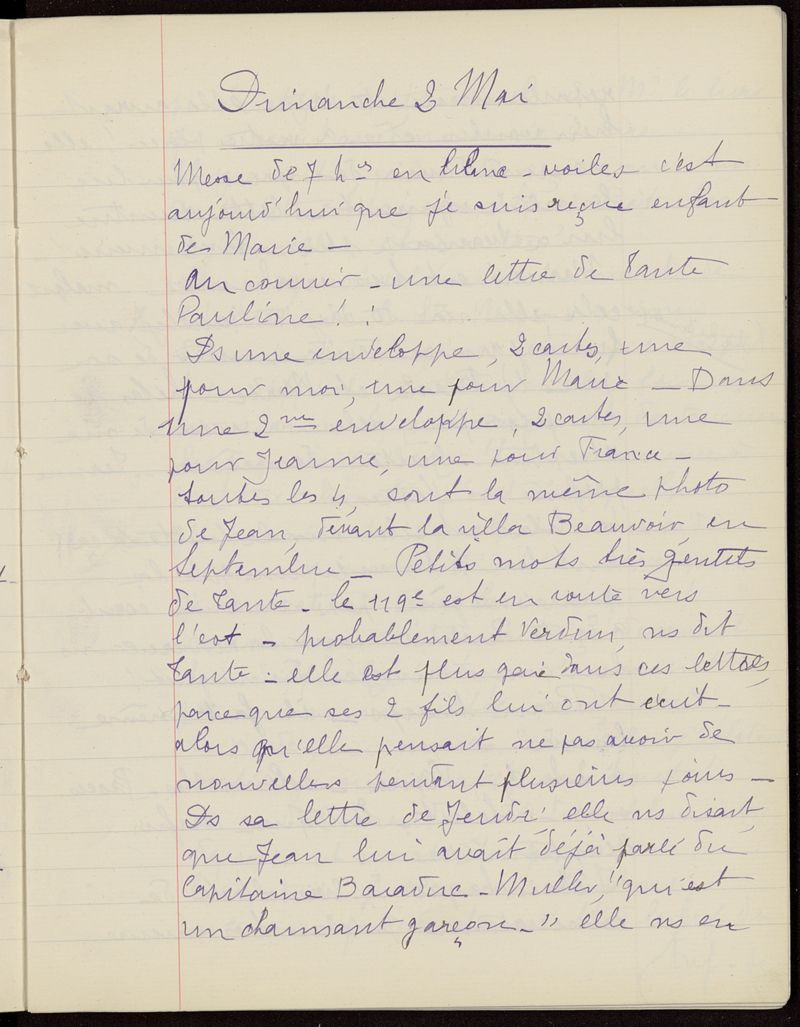 Dimanche 2 Mai
Messe de 7 hres en blanc - voiles c'est
aujourd'hui que je suis reçue enfant
de Marie -
au courrier - une lettre de Tante
Pauline ! :
Ds une enveloppe, 2 cartes, une
pour moi, une pour Marie - Dans
une 2me enveloppe, 2 cartes, une
pour Jeanne, une pour France -
toutes les 4, sont la même photo
de Jean, devant la villa Beauvoir, en
Septembre - Petits mots très gentils
de Tante - le 119e est en route vers
l'est - probablement Verdun, ns dit
Tante - elle est plus gaie dans ces lettres,
parce que ses 2 fils lui ont écrit -
alors qu'elle pensait ne pas avoir de
nouvelles pendant plusieurs jours -
Ds sa lettre de Jeudi, elle ns disait,
que Jean lui avait déjà parlé du
Capitaine Baraduc - Muller, "qui est
un charmant garçon -" elle ns en